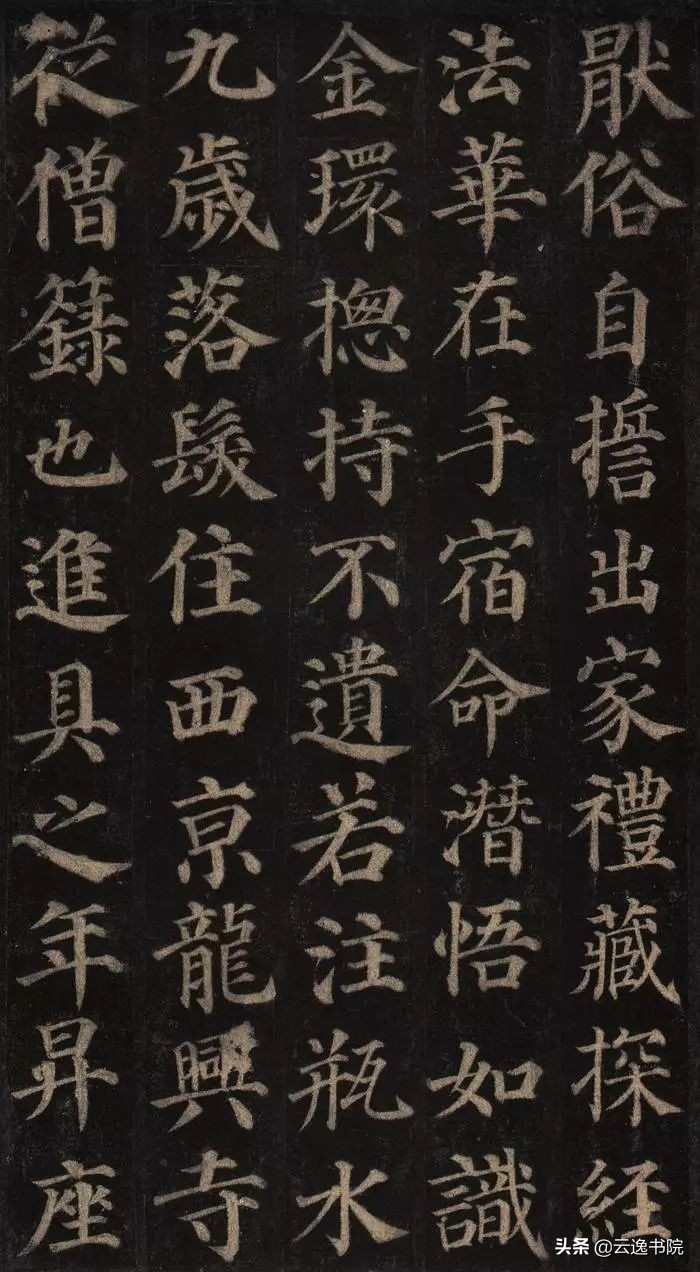 猒俗自誓出家禮藏探経
法華在手宿命潛悟如識
金環揔持不遺若注瓶水
九歲落髮住西京龍興寺
従僧籙也進具之年昇座
头条 @云逸书院